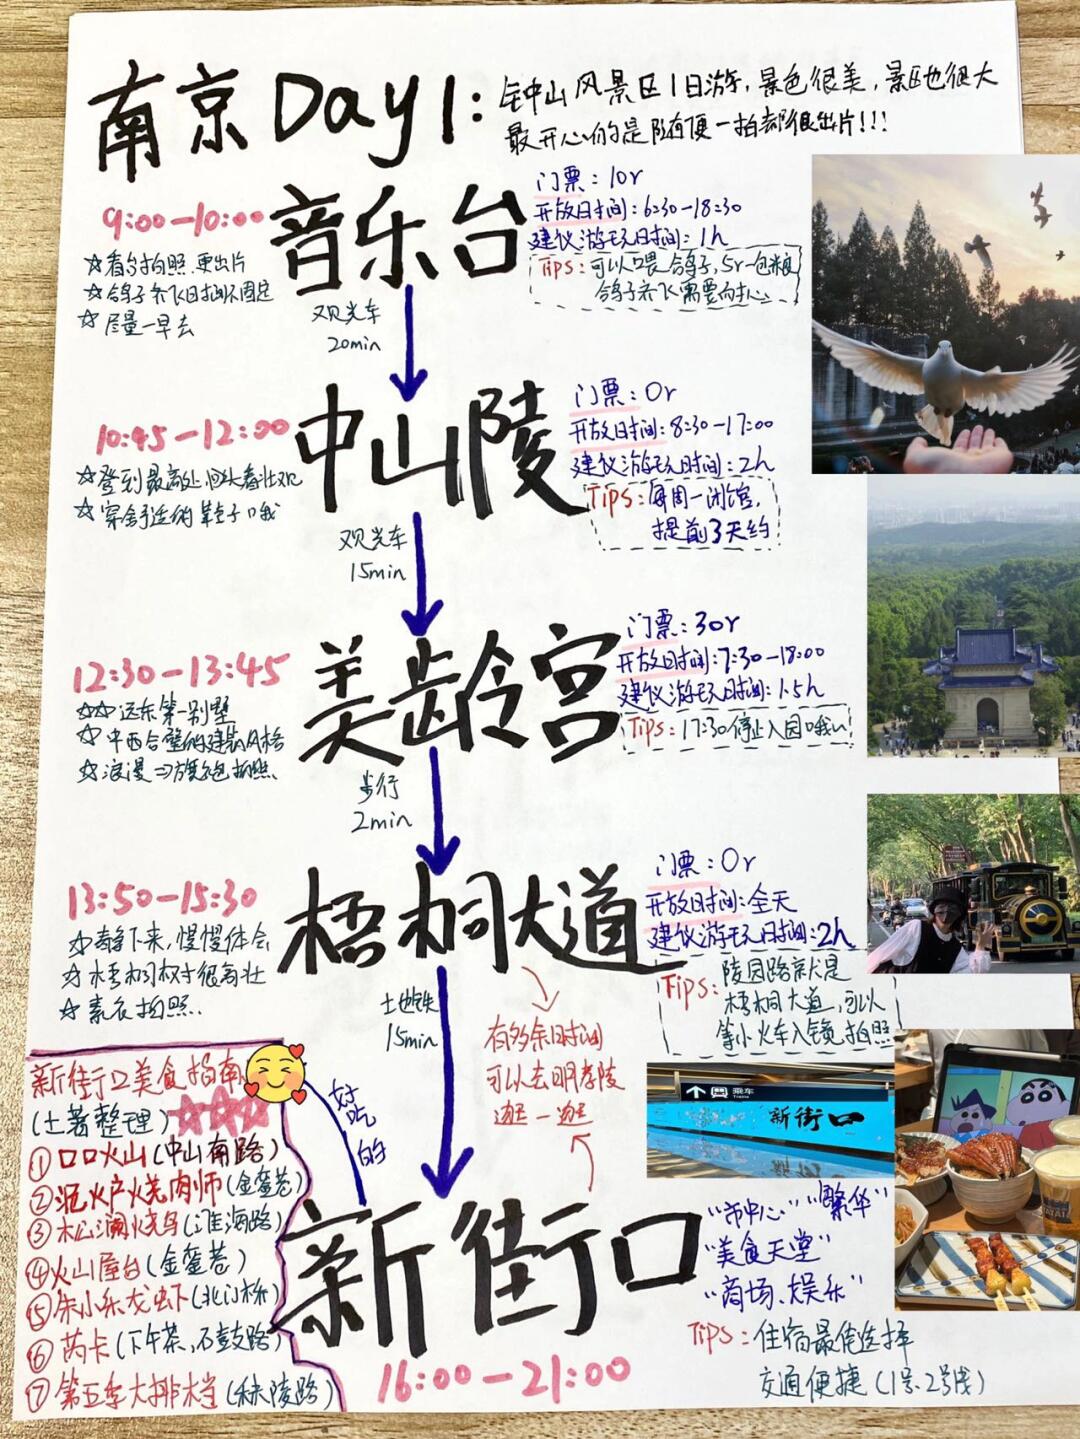 南京Day1:
钟山风景区1日游，景色很美，景区也很大
最开心的是随便一拍都很出片!!!
音乐台
9:00—10:00
☆看多拍照.更出片
☆鸽子乐飞时间不固定
☆尽量一早去
门票:10r
开放时间:6:30-18:30
建议游玩时间:1h
Tips:可以喂鸽子,5r一包粮
鸽子乐飞需要耐心
观光车
20min
中山陵
10:45—12:00
☆登到最高处,回头看壮观
☆穿舒适的鞋子哦
门票:0r
开放时间:8:30-17:00
建议游玩时间:2h
Tips:每周一闭馆,
提前3天约
观光车
15min
美龄宫
12:30—13:45
☆☆远东第一别墅
☆中西合璧的建筑风格
☆浪漫⇒旗袍拍照
门票:30r
开放时间:7:30-18:00
建议游玩时间:1.5h
Tips:17:30停止入园哦~
步行
2min
梧桐大道
13:50—15:30
☆静下来,慢慢体会
☆梧桐树很高壮
☆素衣拍照.
门票:0r
开放时间:全天
建议游玩时间:2h
Tips:陵园路就是
梧桐大道,可以
等小火车入镜拍照
地铁
15min
有多余时间
可以去明孝陵
逛一逛
新街口
16:00—21:00
好吃的
"市中心""繁华"
"美食天堂"
"商场、娱乐"
Tips:住宿最佳选择
交通便捷(1号.2号线)
新街口美食指南
(土著整理)☆☆☆
①口口火山(中山南路)
②泥炉烧肉师(金銮巷)
③松澜烧鸟(淮海路)
④火山屋台(金銮巷)
⑤朱小乐龙虾(北门桥)
⑥芮卡(下午茶,石鼓路)
⑦第五季大排档(秣陵路)
乘车
Trains
新街口